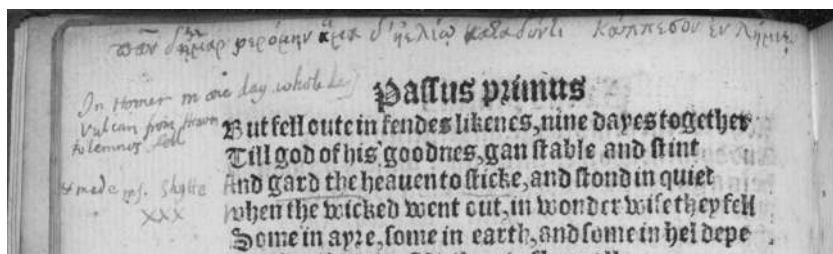 πᾶν δ' ἦμαρ φερόμην ἅμα δ' ἠελίῳ καταδύντι κάππεσον ἐν Λήμνῳ
Passus primus
In Homer in one day whole day
Vulcan from Heavn
to lemnos fell
But fell oute in fendes likenes, nine dayes together
Till god of his goodnes, gan stable and stint
& made
And gard the heauen to sticke, and stond in quiet
xxx
when the wicked went out, in wonder wise they fell
Some in ayre, some in earth, and some in hel depe